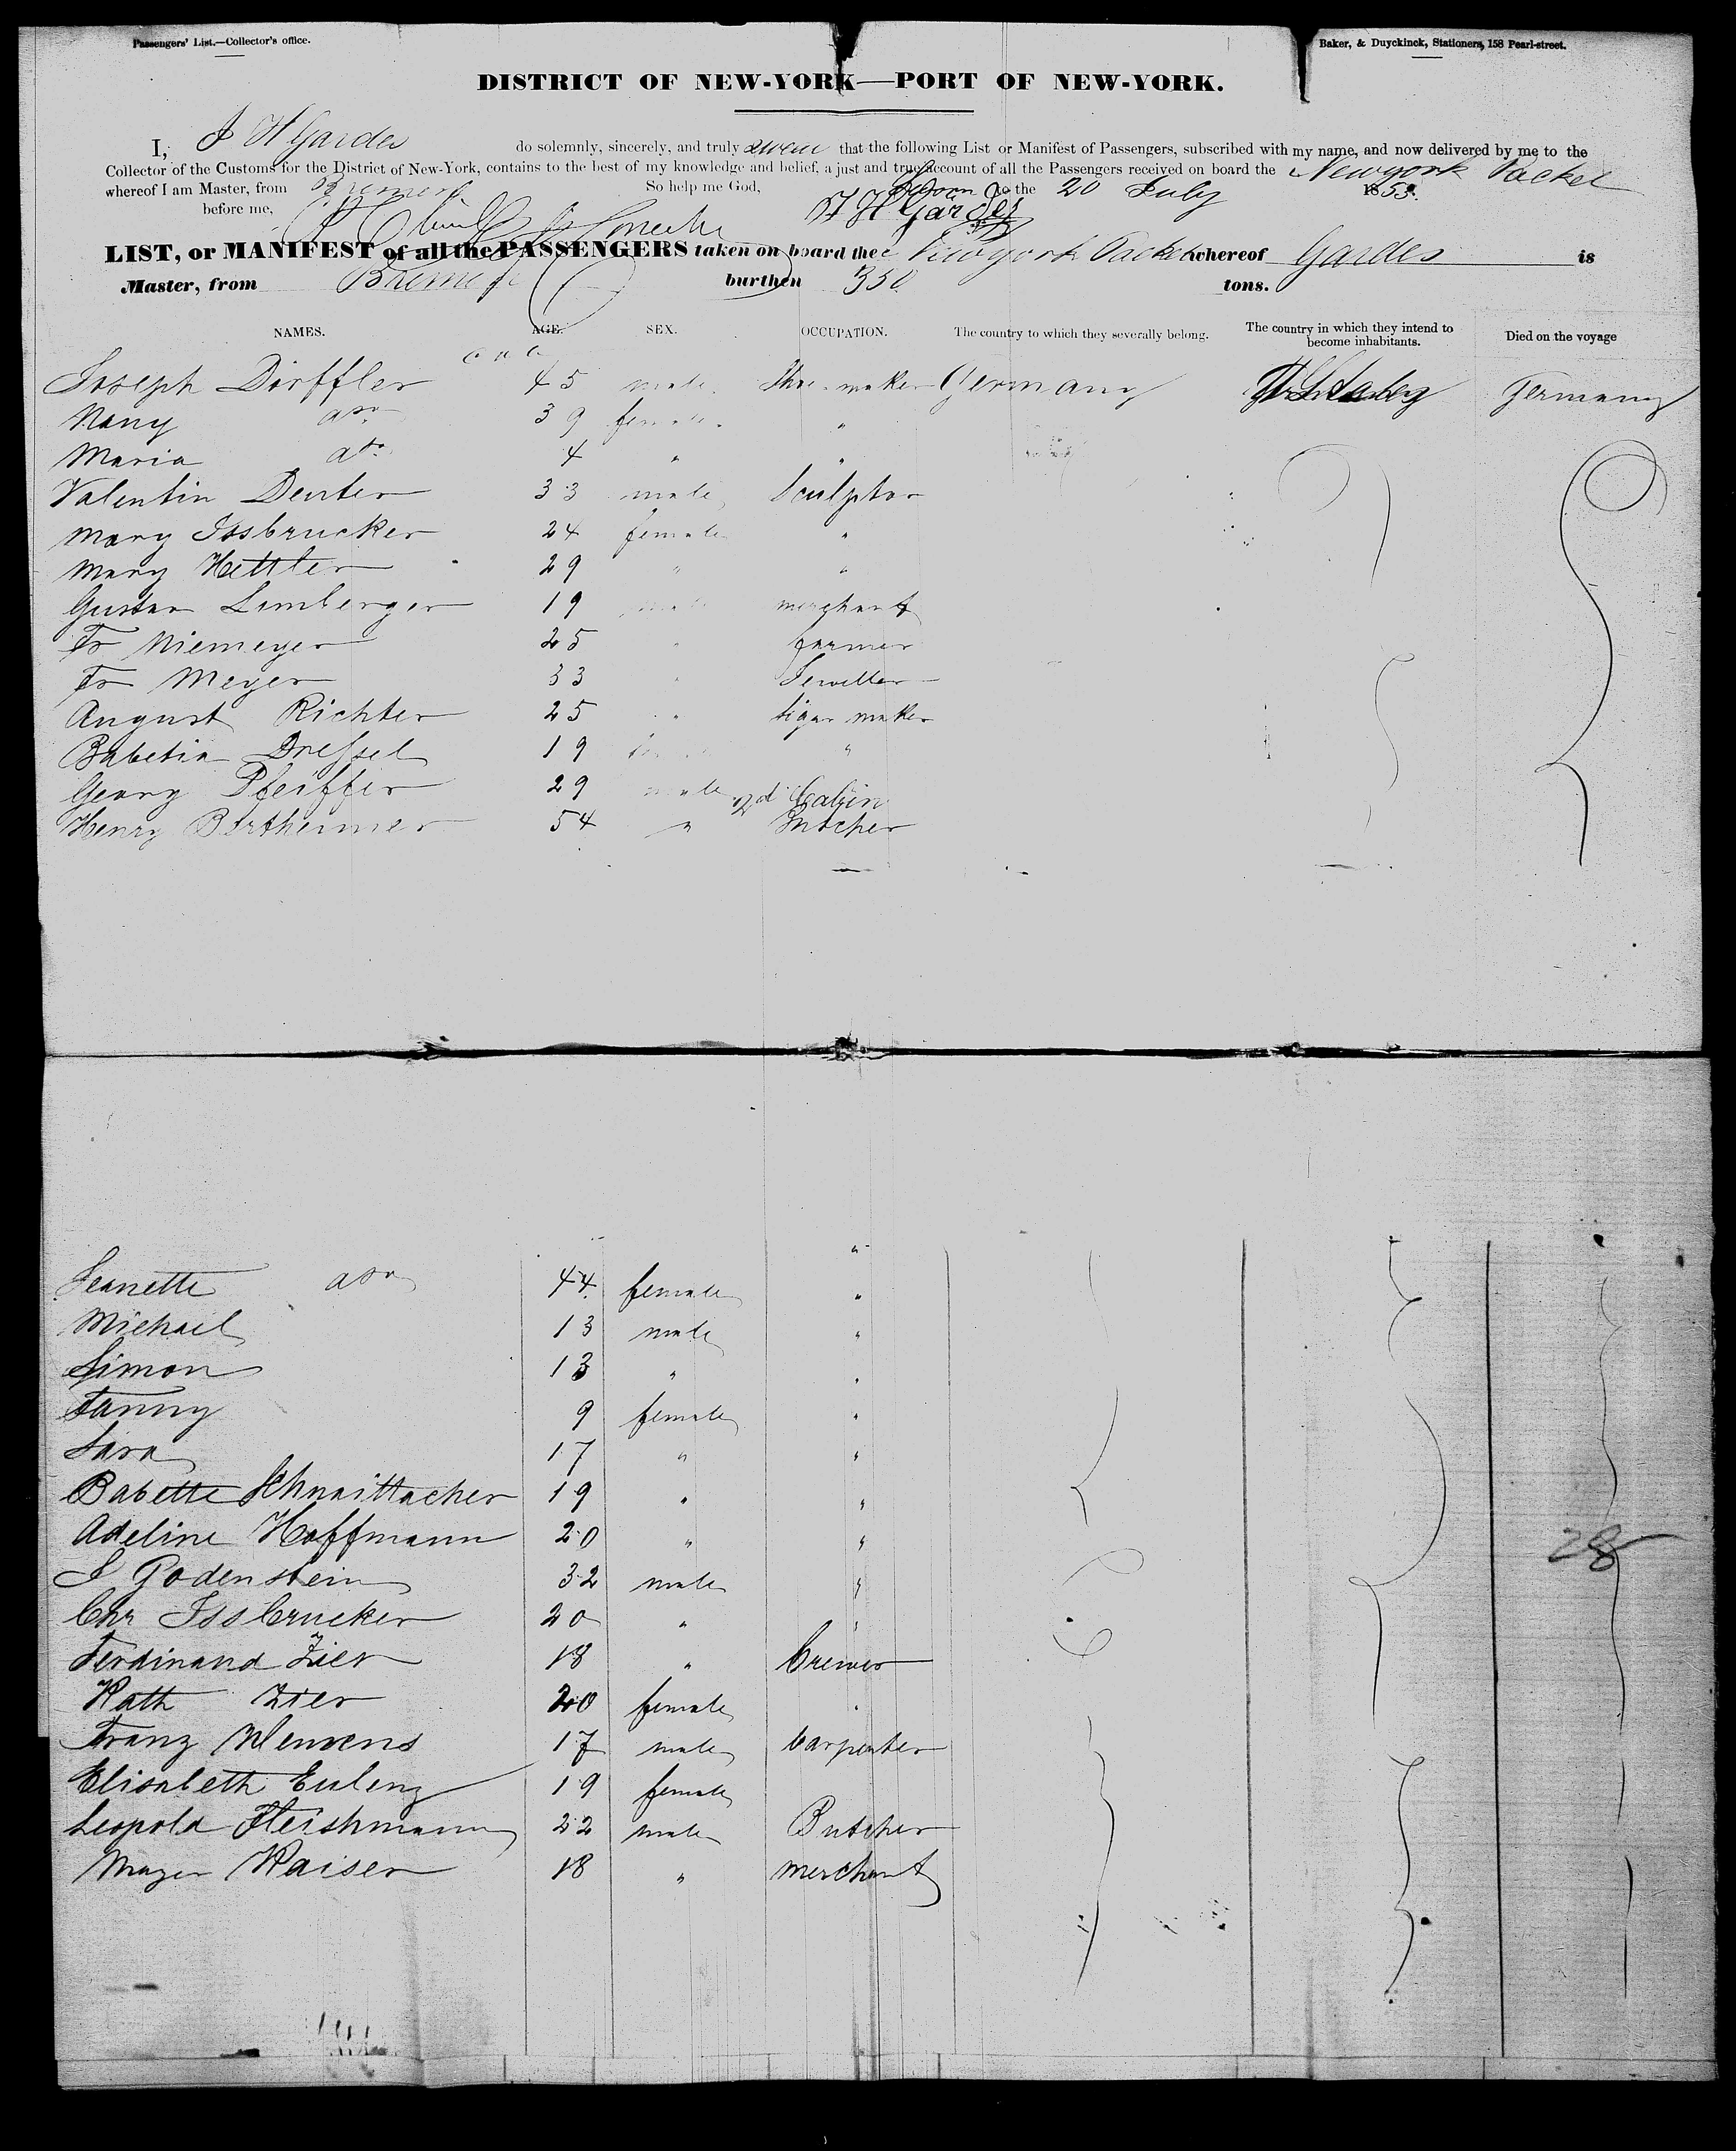 Passengers' List.—Collector's office.
Baker, & Duyckinck, Stationers, 158 Pearl-street.
DISTRICT OF NEW-YORK—PORT OF NEW-YORK.
I, J H Gardes do solemnly, sincerely, and truly swear that the following List or Manifest of Passengers, subscribed with my name, and now delivered by me to the
Collector of the Customs for the District of New-York, contains to the best of my knowledge and belief, a just and true account of all the Passengers received on board the Newyork Packet
whereof I am Master, from Bremen So help me God, Sworn to the 20 July 1853.
before me, J H Gardes
LIST, or MANIFEST of all the PASSENGERS taken on board the Newyork Packet whereof Gardes is
Master, from Bremen burthen 350 tons.
NAMES. AGE. SEX. OCCUPATION. The country to which they severally belong. The country in which they intend to become inhabitants. Died on the voyage
Joseph Dörffler 45 male Shoemaker Germany Germany
Nany 39 female "
Maria do 4 " "
Valentin Deuter 33 male Sculptor
Mary Issbrucker 24 female "
Mary Hettler 29 " "
Gustav Limberger 19 male merchant
Fr Niemeyer 25 " farmer
Fr Meyer 33 " Jeweller
August Richter 25 " Sigar maker
Babetia Dressel 19 "
Georg Pfeiffer 29 male
2d Cabin
Henry Bertheimer 54 " Butcher
Jeanette 44 female "
Michael 13 male "
Simon 13 " "
Fanny 9 female "
Sara 17 " "
Babette Schnaittacher 19 " "
Adeline Hoffmann 20 " "
28
J Godenstein 32 male "
Chr Issbrucker 20 " "
Ferdinand Zier 18 " brewer
Kath Zier 20 female "
Franz Clemens 17 male Carpenter
Elisabeth Euleng 19 female
Leopold Fleishmann 22 male Butcher
Mayer Kaiser 18 " merchant